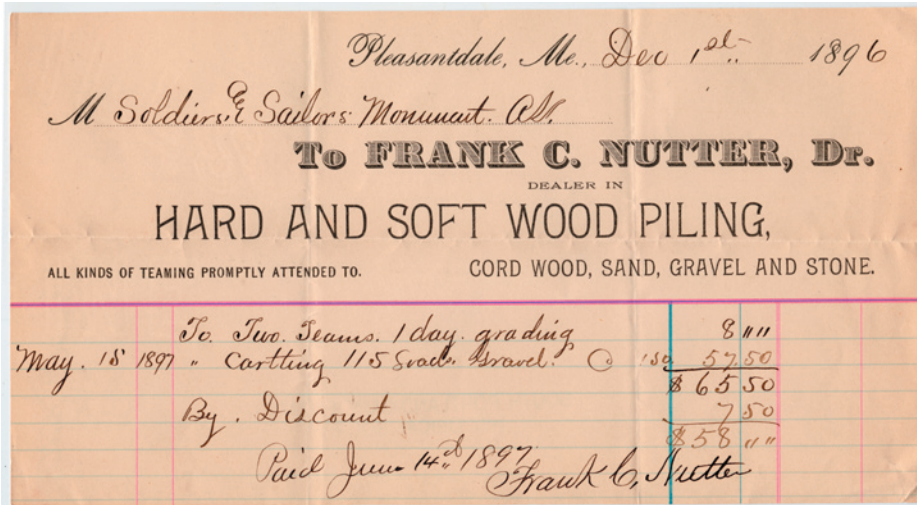 Pleasantdale, Me., Dec 1st 1896
M Soldiers & Sailors Monument.
To FRANK C. NUTTER, Dr.
DEALER IN
HARD AND SOFT WOOD PILING,
ALL KINDS OF TEAMING PROMPTLY ATTENDED TO. CORD WOOD, SAND, GRAVEL AND STONE.
To. Two. Teams. 1 day. grading 8 " "
May. 15 1897 " Cartting 115 Loads. Gravel. @ .50 57.50
$ 65 50
By. Discount 7 50
$ 58 " "
Paid June 14th 1897
Frank C. Nutter